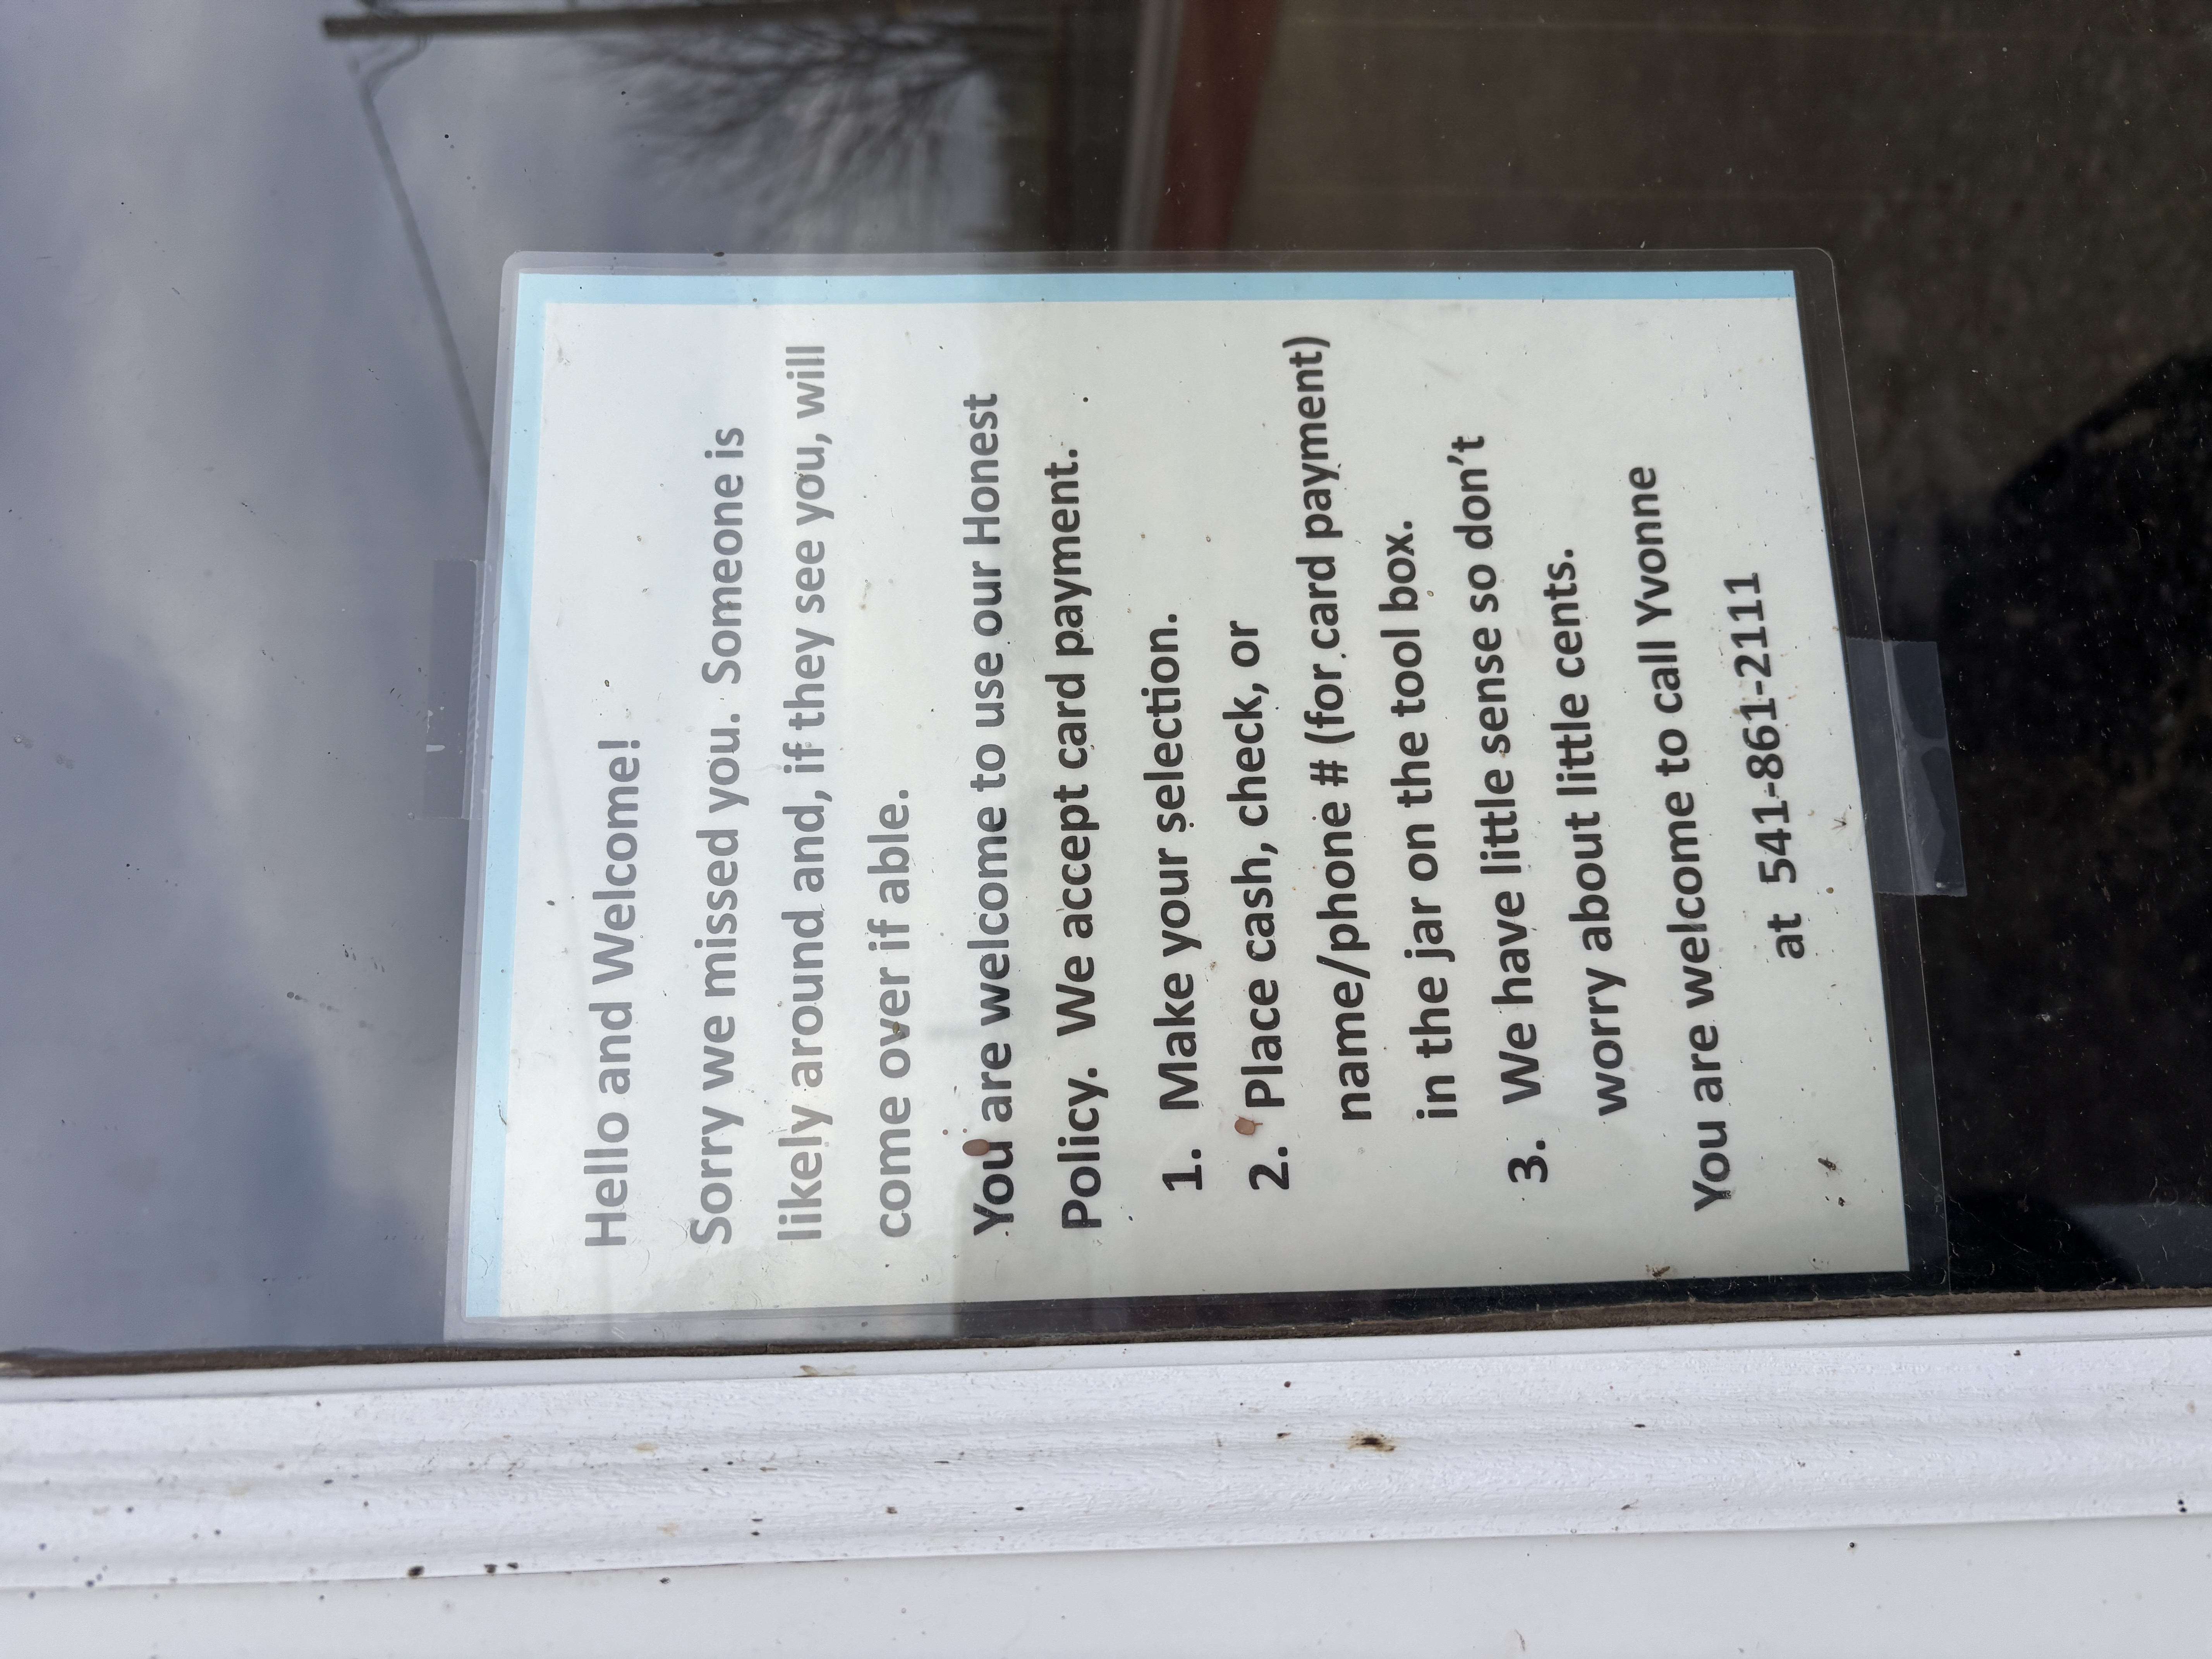 Hello and Welcome!
Sorry we missed you. Someone is
likely around and, if they see you, will
come over if able.
You are welcome to use our Honest
Policy. We accept card payment.
1. Make your selection.
2. Place cash, check, or
name/phone # (for card payment)
in the jar on the tool box.
3. We have little sense so don't
worry about little cents.
You are welcome to call Yvonne
at 541-861-2111